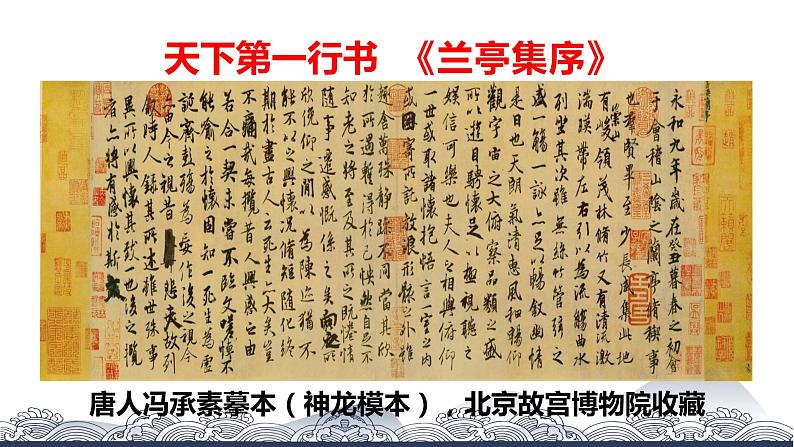 天下第一行书 《兰亭集序》
永和九年歲在癸丑暮春之初會
于會稽山陰之蘭亭脩稧事
也羣賢畢至少長咸集此地
有崇山峻領茂林脩竹又有清流激
湍暎帶左右引以為流觴曲水
列坐其次雖無絲竹管弦之
盛一觴一詠亦足以暢敘幽情
是日也天朗氣清惠風和暢仰
觀宇宙之大俯察品類之盛
所以遊目騁懷足以極視聽之
娛信可樂也夫人之相與俯仰
一世或取諸懷抱悟言一室之內
或因寄所託放浪形骸之外雖
趣舍萬殊靜躁不同當其欣
於所遇蹔得於己怏然自足不
知老之將至及其所之既惓情
隨事遷感慨係之矣向之所
欣俛仰之閒以為陳迹猶不
能不以之興懷況脩短隨化終
期於盡古人云死生亦大矣豈
不痛哉每攬昔人興感之由
若合一契未嘗不臨文嗟悼不
能喻之於懷固知一死生為虛
誕齊彭殤為妄作後之視今
亦由今之視昔悲夫故列
敘時人錄其所述雖世殊事
異所以興懷其致一也後之攬
者亦將有感於斯文
唐人冯承素摹本（神龙模本），北京故宫博物院收藏